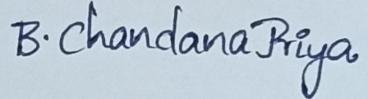 B. Chandana Priya